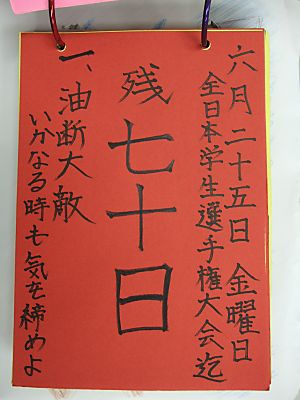 六月二十五日 金曜日
全日本学生選手権大会迄
残七十日
一、油断大敵
いかなる時も気を締めよ